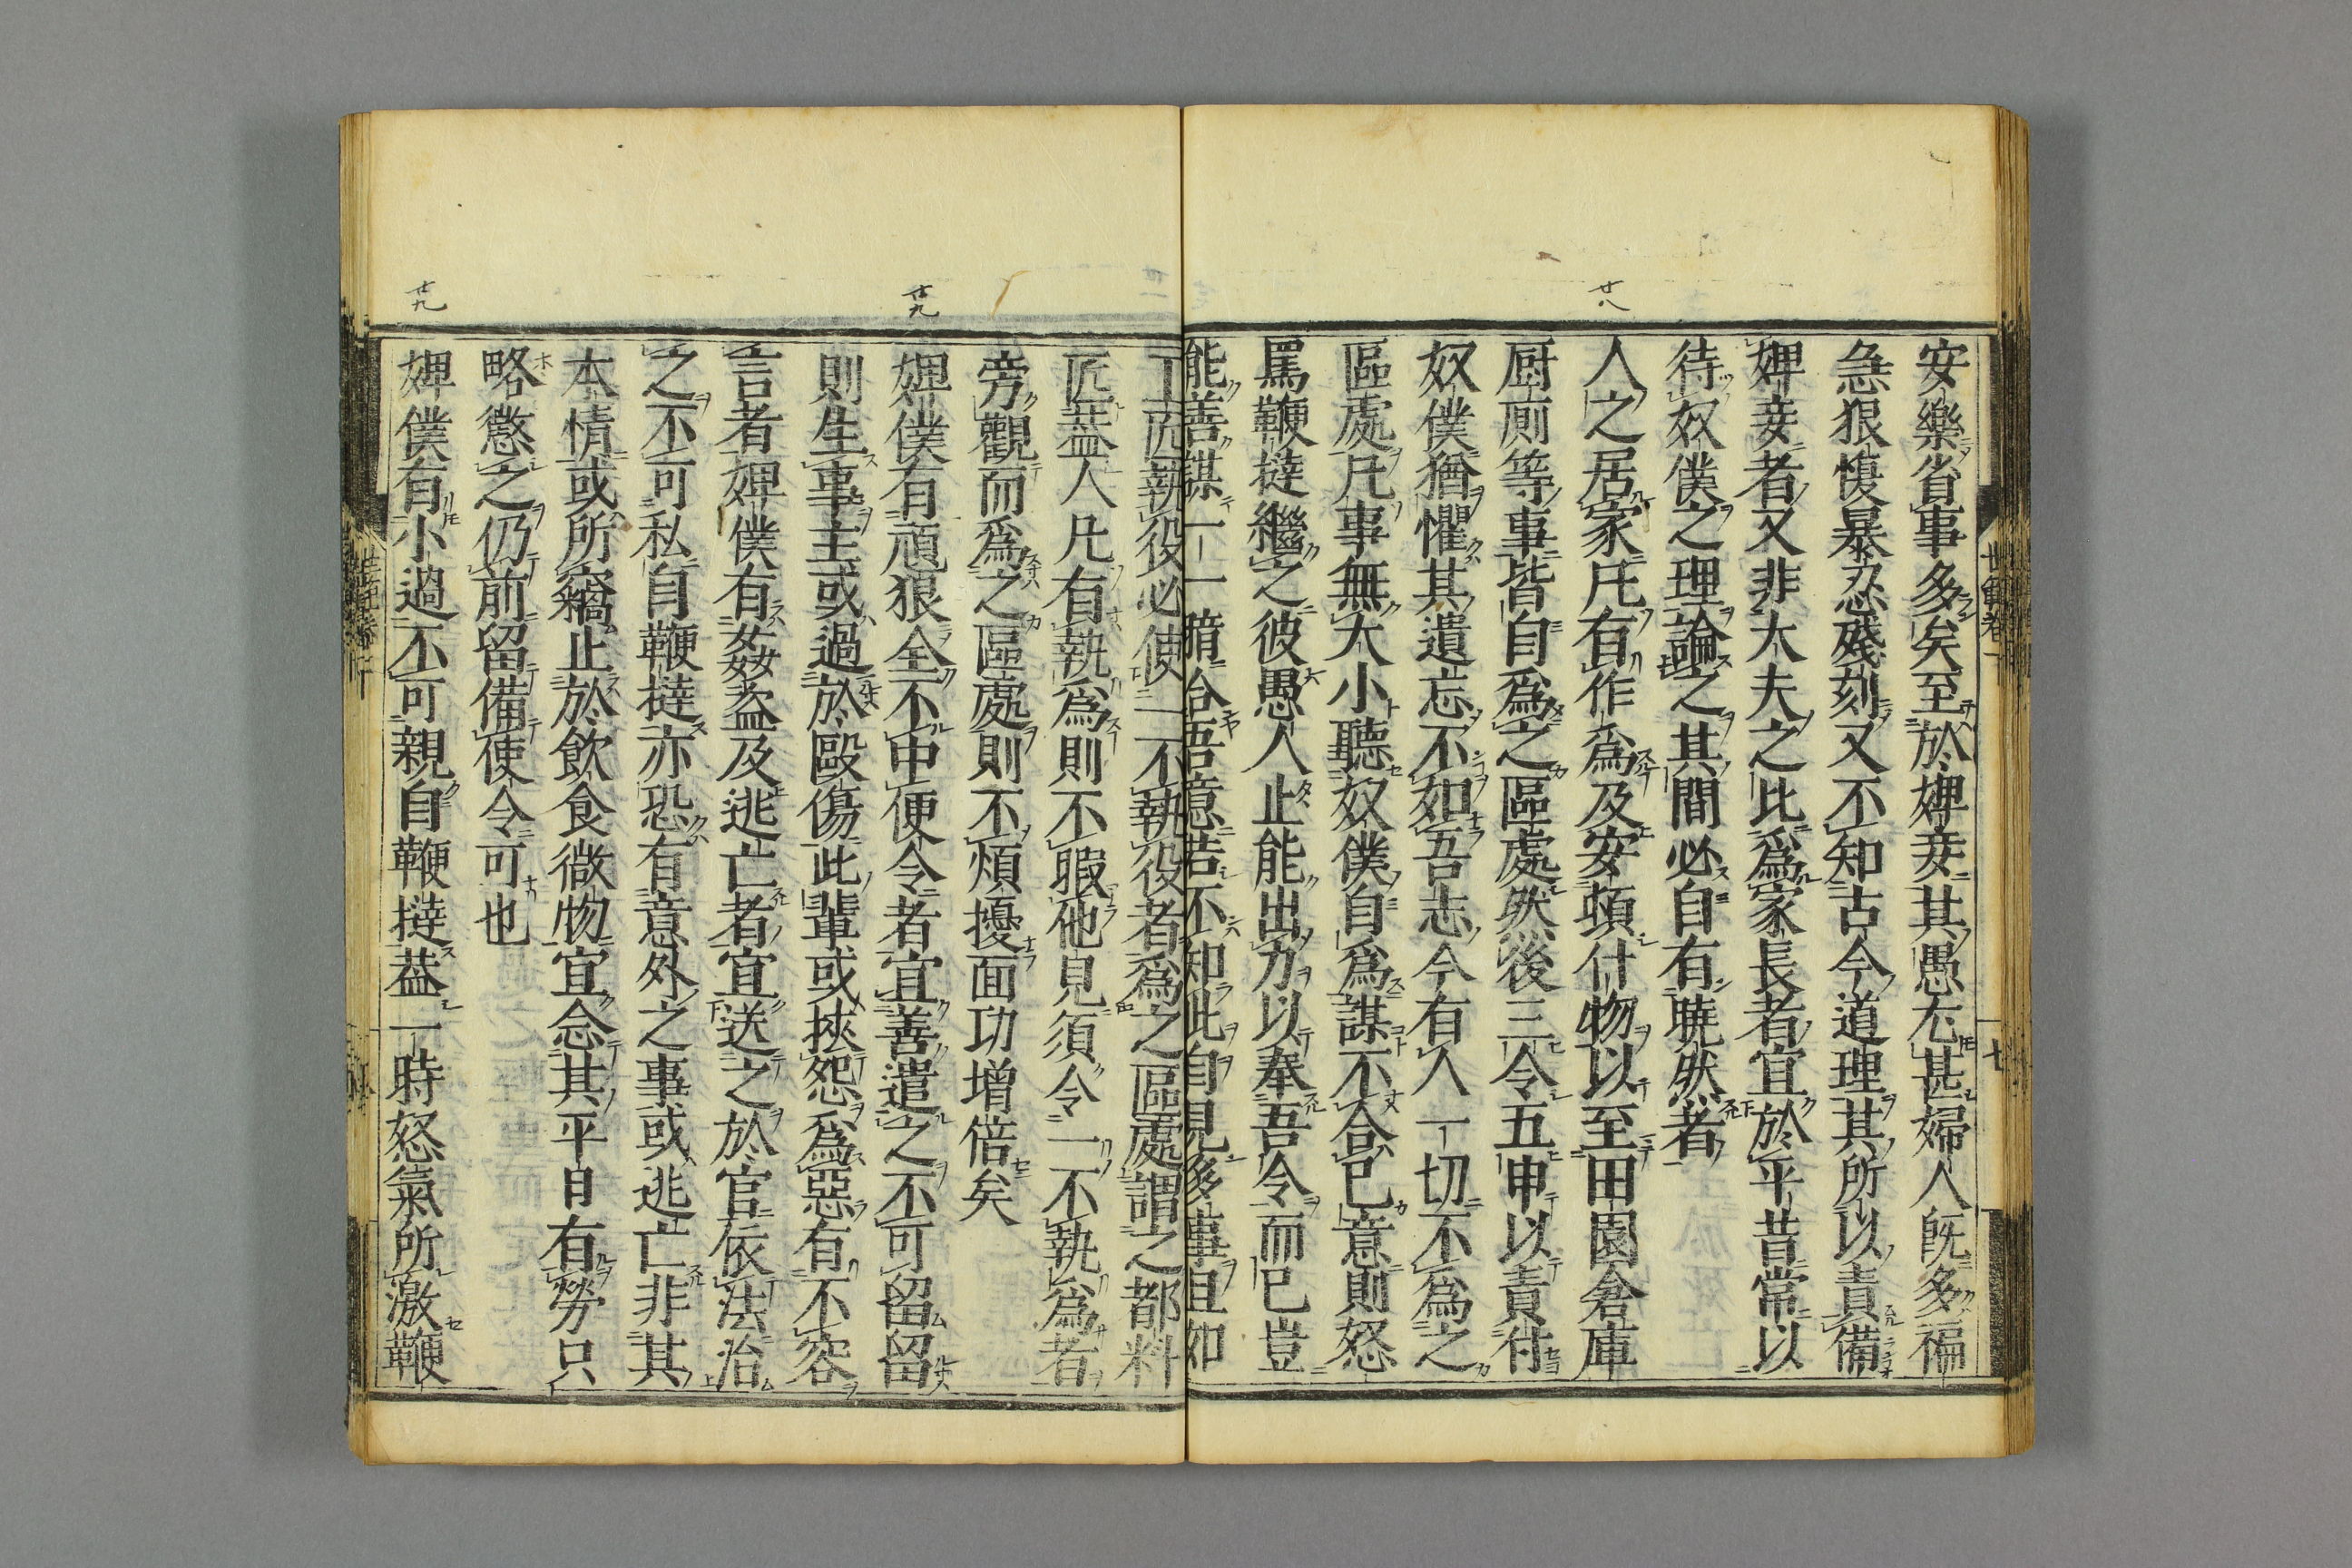 廿八
安樂省事多矣至於婢妾其愚尤甚婦人既多褊
急狠愎暴忍殘刻又不知古今道理其所以責備
婢妾者又非大夫之比爲家長者宜於平昔常以
待奴僕之理論之其間必自有曉然者
人之居家凡有作爲及安頓什物以至田園倉庫
厨厠等事皆自爲之區處然後三令五申以責付
奴僕猶懼其遺忘不如吾志今有人一切不爲之
區處凡事無大小聽奴僕自爲謀不合己意則怒
罵鞭撻繼之彼愚人止能出力以奉吾令而已豈
能善謀一一暗合吾意若不知此自見多事且如
世範卷
十七
廿九
廿九
工匠執役必使一不執役者爲之區處謂之都料
匠蓋人凡有執爲則不暇他見須令一不執爲者
旁觀而爲之區處則不煩擾面功增倍矣
婢僕有頑狠全不中使令者宜善遣之不可留留
則生事主或過於毆傷此輩或挾怨爲惡有不容
言者婢僕有姦盗及逃亡者宜送之於官依法治
之不可私自鞭撻亦恐有意外之事或逃亡非其
本情或所竊止於飲食微物宜念其平日有勞只
略懲之仍前留備使令可也
婢僕有小過不可親自鞭撻蓋一時怒氣所激鞭